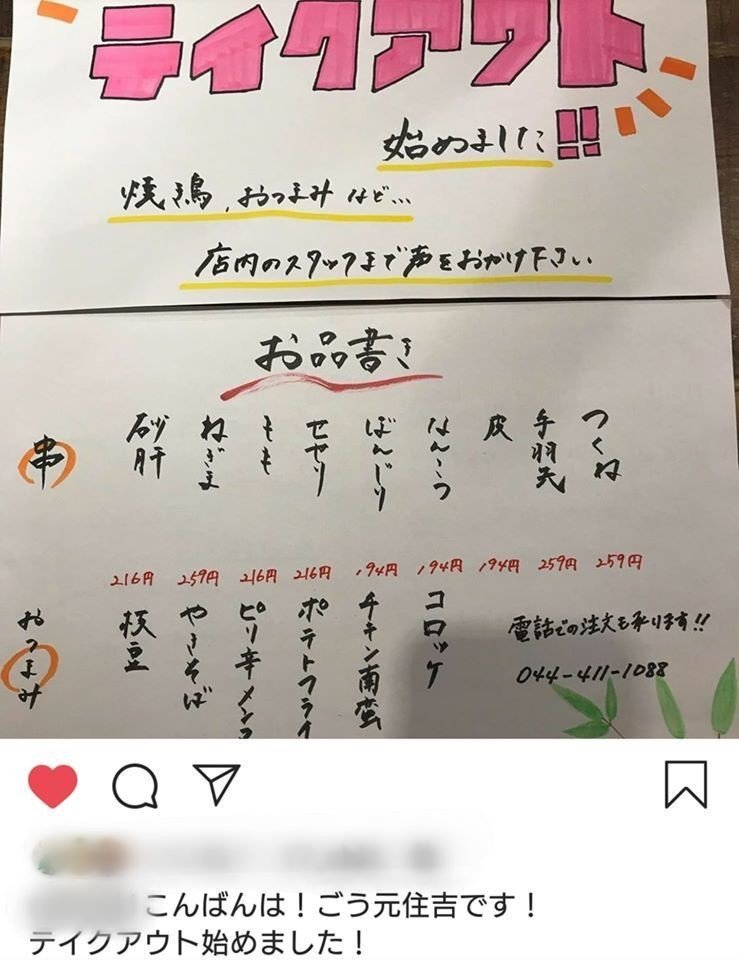 テイクアウト!!
始めました
焼鳥、おつまみなど…
店内のスタッフまで声をおかけ下さい
お品書き
串
つくね 259円
手羽先 259円
皮 194円
なんこつ 194円
ぼんじり 194円
せせり 216円
もも 216円
ねぎま 259円
砂肝 216円
おつまみ
コロッケ
チキン南蛮
ポテトフライ
ピリ辛メンマ
やきそば
枝豆
電話での注文も承ります!!
044-411-1088
こんばんは！ごう元住吉です！
テイクアウト始めました！